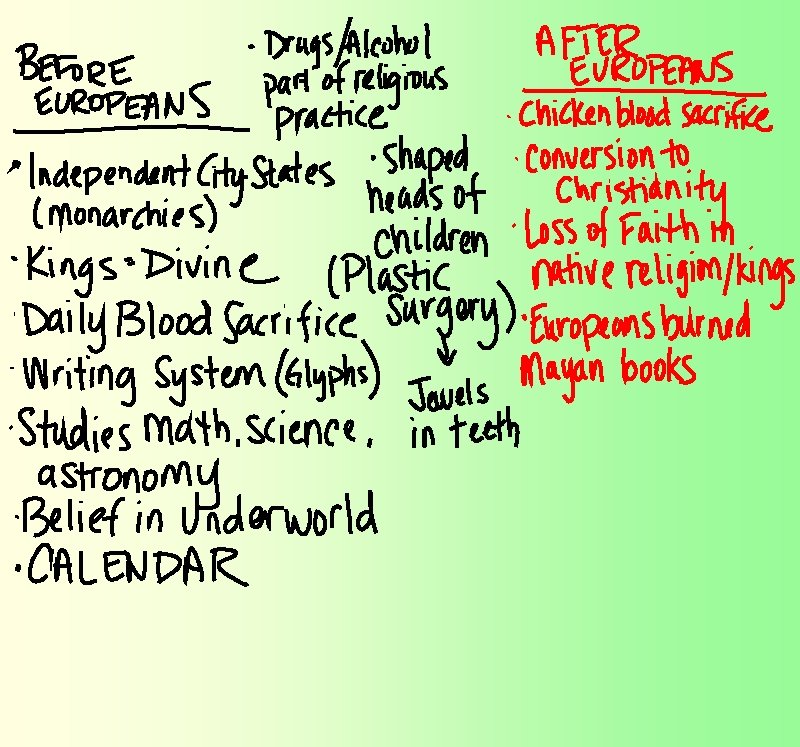 BEFORE
EUROPEANS
• Independent City-States
(monarchies)
• Kings = Divine
• Daily Blood Sacrifice
• Writing System (Glyphs)
• Studies math, science,
astronomy
• Belief in Underworld
• CALENDAR
• Drugs/Alcohol
part of religious
practice
• Shaped
heads of
children
(Plastic
Surgery)
↓
Jewels
in teeth
AFTER
EUROPEANS
• Chicken blood sacrifice
• Conversion to
Christianity
• Loss of Faith in
native religion/kings
• Europeans burned
Mayan books